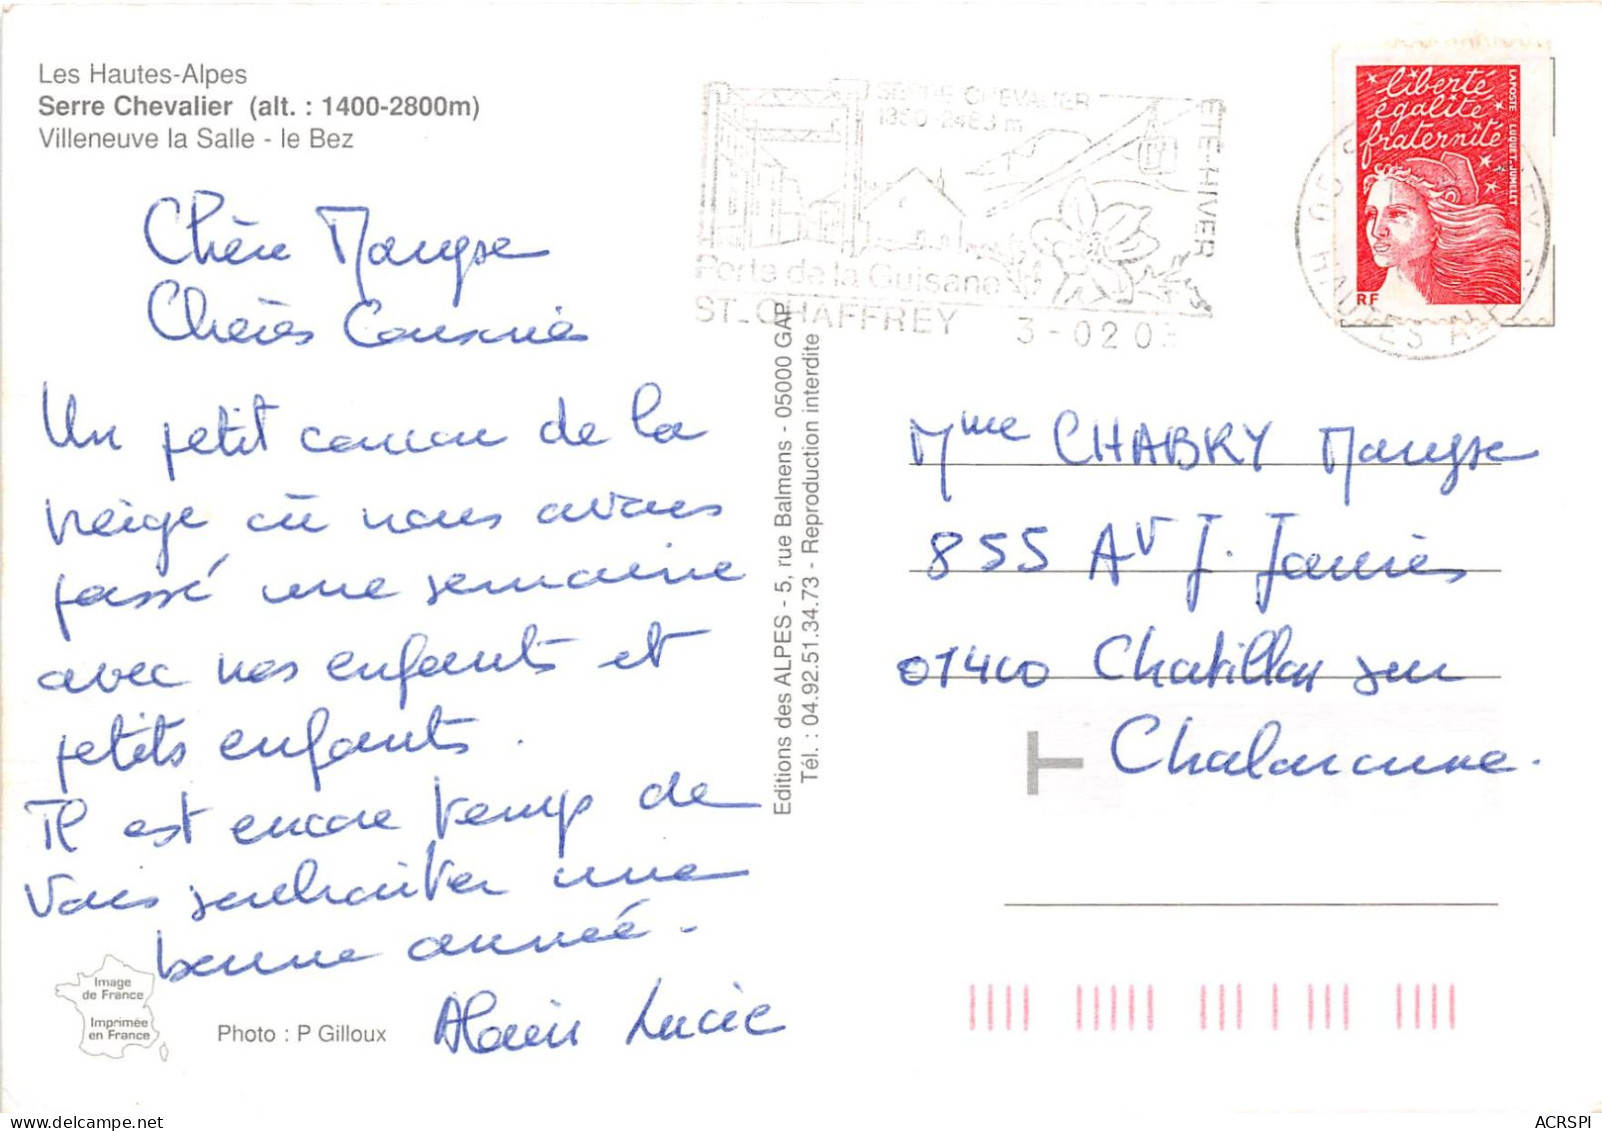 Les Hautes-Alpes
Serre Chevalier (alt. : 1400-2800m)
Villeneuve la Salle - le Bez
Chère Maryse
Chères Cousines
Un petit coucou de la
neige où nous avons
passé une semaine
avec nos enfants et
petits enfants.
Il est encore temps de
vous souhaiter une
bonne année.
Alain Lucie
Image
de France
Imprimée
en France
Photo : P Gilloux
Editions des ALPES - 5, rue Balmens - 05000 GAP
Tél. : 04.92.51.34.73 - Reproduction interdite
SERRE CHEVALIER
1350-2483 m
ETE-HIVER
Porte de la Guisane
ST-CHAFFREY 3-02 0
liberté
égalité
fraternité
LA POSTE LUQUET-JUMELET
RF
05
HAUTES ALPES
Mme CHABRY Maryse
855 Av J. Janriès
01400 Chatillon sur
Chalaronne.
T
ACRSPI